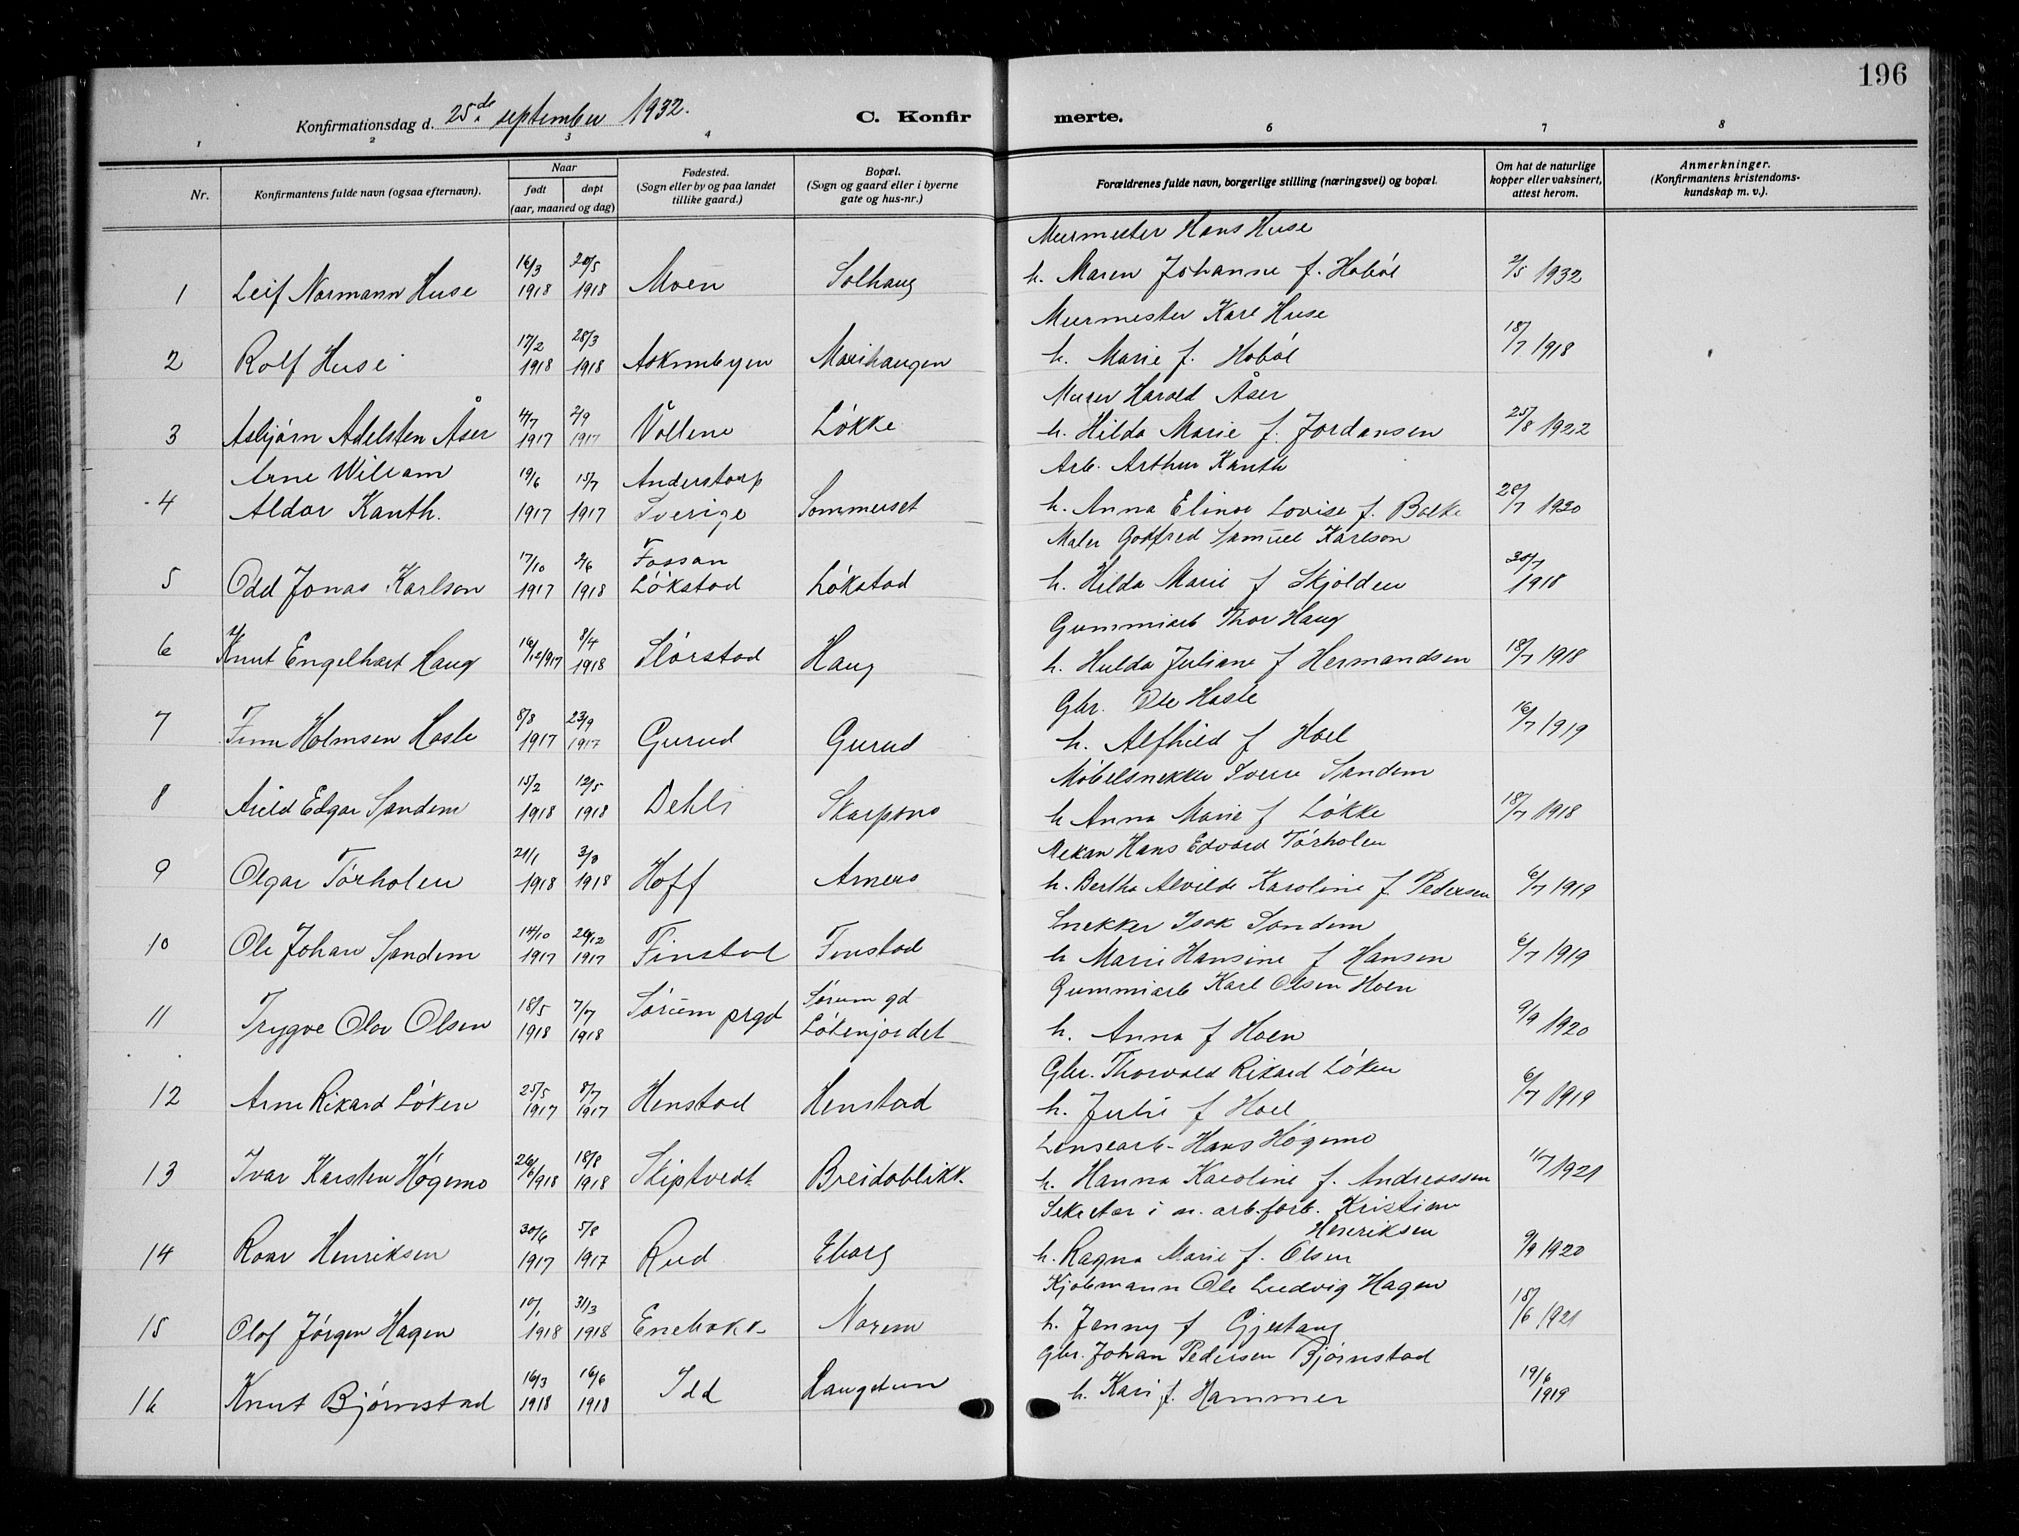 196
Konfirmationsdag d. 25de september 1932.
C. Konfir
merte.
1 2 3 4 6 7 8
Nr.
Konfirmantens fulde navn (ogsaa efternavn).
Naar
født
døpt
(aar, maaned og dag)
Fødested.
(Sogn eller by og paa landet
tillike gaard.)
Bopæl.
(Sogn og gaard eller i byerne
gate og hus-nr.)
Forældrenes fulde navn, borgerlige stilling (næringsvei) og bopæl.
Om hat de naturlige
kopper eller vaksinert,
attest herom.
Anmerkninger.
(Konfirmantens kristendoms-
kundskap m. v.).
Murmester Hans Huse
1 Leif Normann Huse 16/3 1918 20/5 1918 Moen Solhaug h. Maren Johanne f. Hobøl 2/5 1932
Murmester Karl Huse
2 Rolf Huse 17/2 1918 28/3 1918 Askimbyen Marihaugen h. Marie f. Hobøl 18/7 1918
Murer Harald Åser
3 Asbjørn Adelsten Åser 4/7 1917 2/9 1917 Vollene Løkke h. Hilda Marie f. Jordansen 25/8 1922
Arne William Anderstorp Arb. Arthur Kanth
4 Aldor Kanth. 19/6 1917 15/7 1917 Sverige Sommerset h. Anna Elinor Lovise f. Bolke 28/7 1920
Maler Godfred Samuel Karlson
Fossan
5 Odd Jonas Karlson 17/10 1917 2/6 1918 Løkstad Løkstad h. Hilda Marie f Skjolden 30/7 1918
Gummiarb Thor Haug
6 Knut Engelhart Haug 16/12 1917 8/4 1918 Slørstad Haug h. Hulda Juliane f Hermandsen 18/7 1918
Gbr. Ole Hasle
7 Finn Holmsen Hasle 8/8 1917 23/9 1917 Gurud Gurud h. Alfhild f Hoel 16/7 1919
Møbelsnekker Sverre Sandem
8 Arild Edgar Sandem 15/2 1918 12/5 1918 Dehli Skarpsno h Anna Marie f Løkke 18/7 1918
Mekan Hans Edvard Tørholen
9 Olgar Tørholen 21/1 1918 3/3 1918 Hoff Arnero h. Bertha Alvilde Karoline f. Pedersen 6/7 1919
Snekker Isak Sandem
10 Ole Johan Sandem 14/10 1917 26/12 1917 Finstad Finstad h Marie Hansine f Hansen 6/7 1919
Gummiarb Karl Olsen Hoen
Sørum gd
11 Trygve Olav Olsen 18/5 1918 7/7 1918 Sørum prgd Løkenjordet h. Anna f Hoen 9/9 1920
Gbr. Thorvald Rikard Løken
12 Arne Rikard Løken 25/5 1917 8/7 1917 Henstad Henstad h. Julie f Hoel 6/7 1919
Lensearb. Hans Høgemo
13 Ivar Karsten Høgemo 26/6 1918 18/8 1918 Skiptvedt Breidablikk. h. Hanna Karoline f. Andreassen 11/7 1921
Sekretær i n. arb.forb. Kristian
Henriksen
14 Roar Henriksen 30/6 1917 5/8 1917 Rud Eborg h. Ragna Marie f. Olsen 9/9 1920
Kjøbmann Ole Ludvig Hagen
15 Olaf Jørgen Hagen 10/1 1918 31/3 1918 Enebakk Norem h. Jenny f Gjestang 18/6 1921
Gbr. Johan Pedersen Bjørnstad
16 Knut Bjørnstad 16/3 1918 16/6 1918 Idd Haugstun h. Kari f. Hammer 19/6 1919